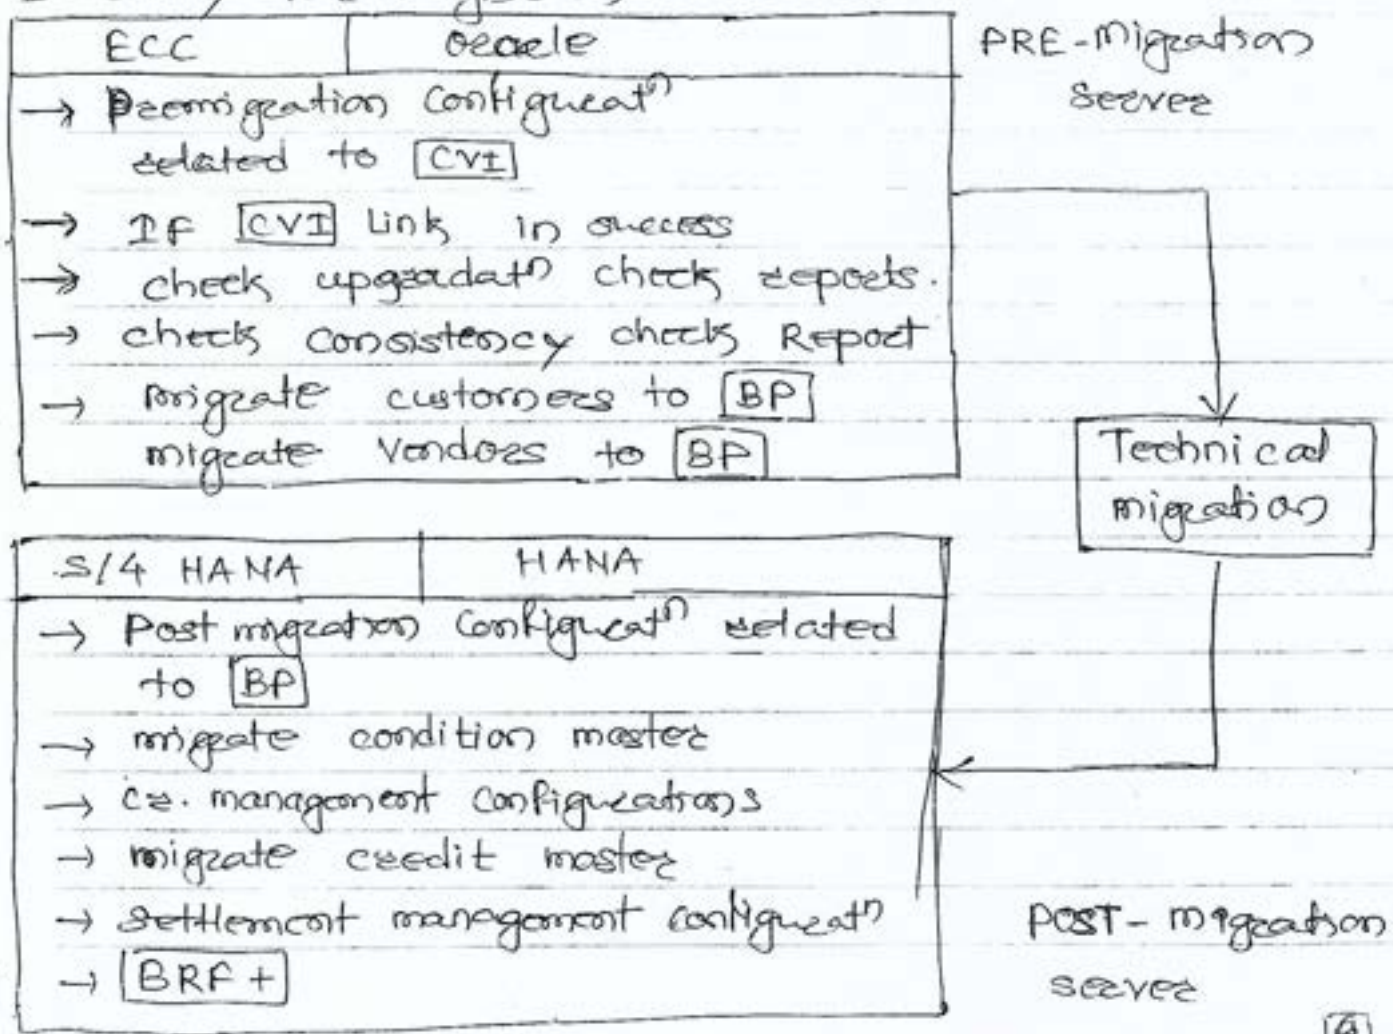 ECC Oracle
PRE-Migration
Server
→ Premigration Configuratⁿ
related to CVI
→ If CVI Link in success
→ check upgradatⁿ check reports.
→ check consistency check Report
→ migrate customers to BP
migrate Vendors to BP
Technical
migration
S/4 HANA HANA
→ Post migration Configuratⁿ related
to BP
→ migrate condition master
→ cr. management configurations
→ migrate credit master
→ settlement management configuratⁿ
→ BRF+
POST-migration
server